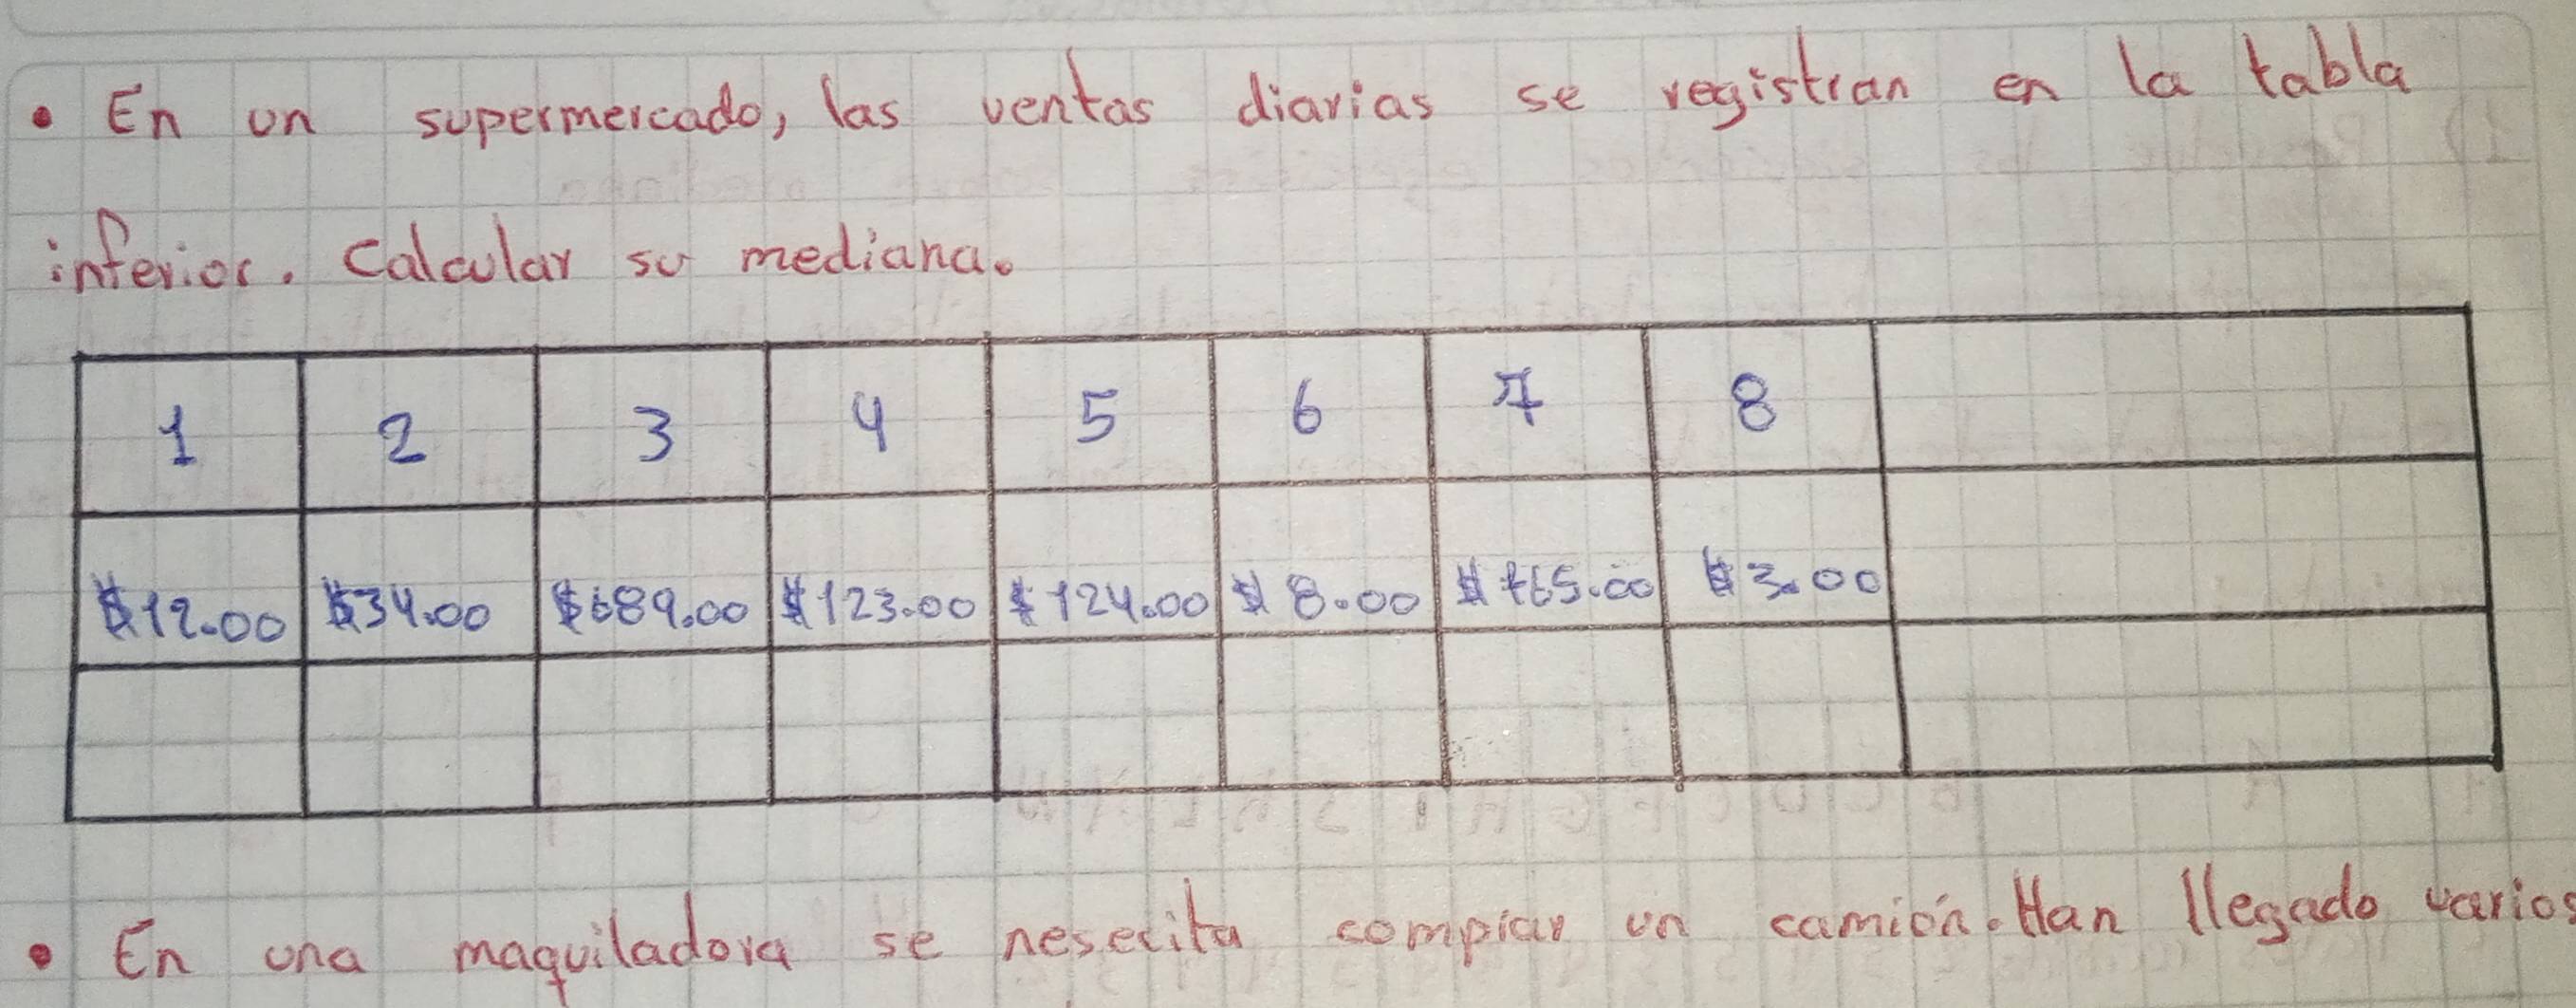 • En un supermercado, las ventas diarias se registran en la tabla
inferior. Calcular su mediana.
1 2 3 4 5 6 7 8
$12.00 $34.00 $689.00 $123.00 $124.00 $8.00 $765.00 $3.00
• En una maquiladora se nesecita comprar un camión. Han llegado varios